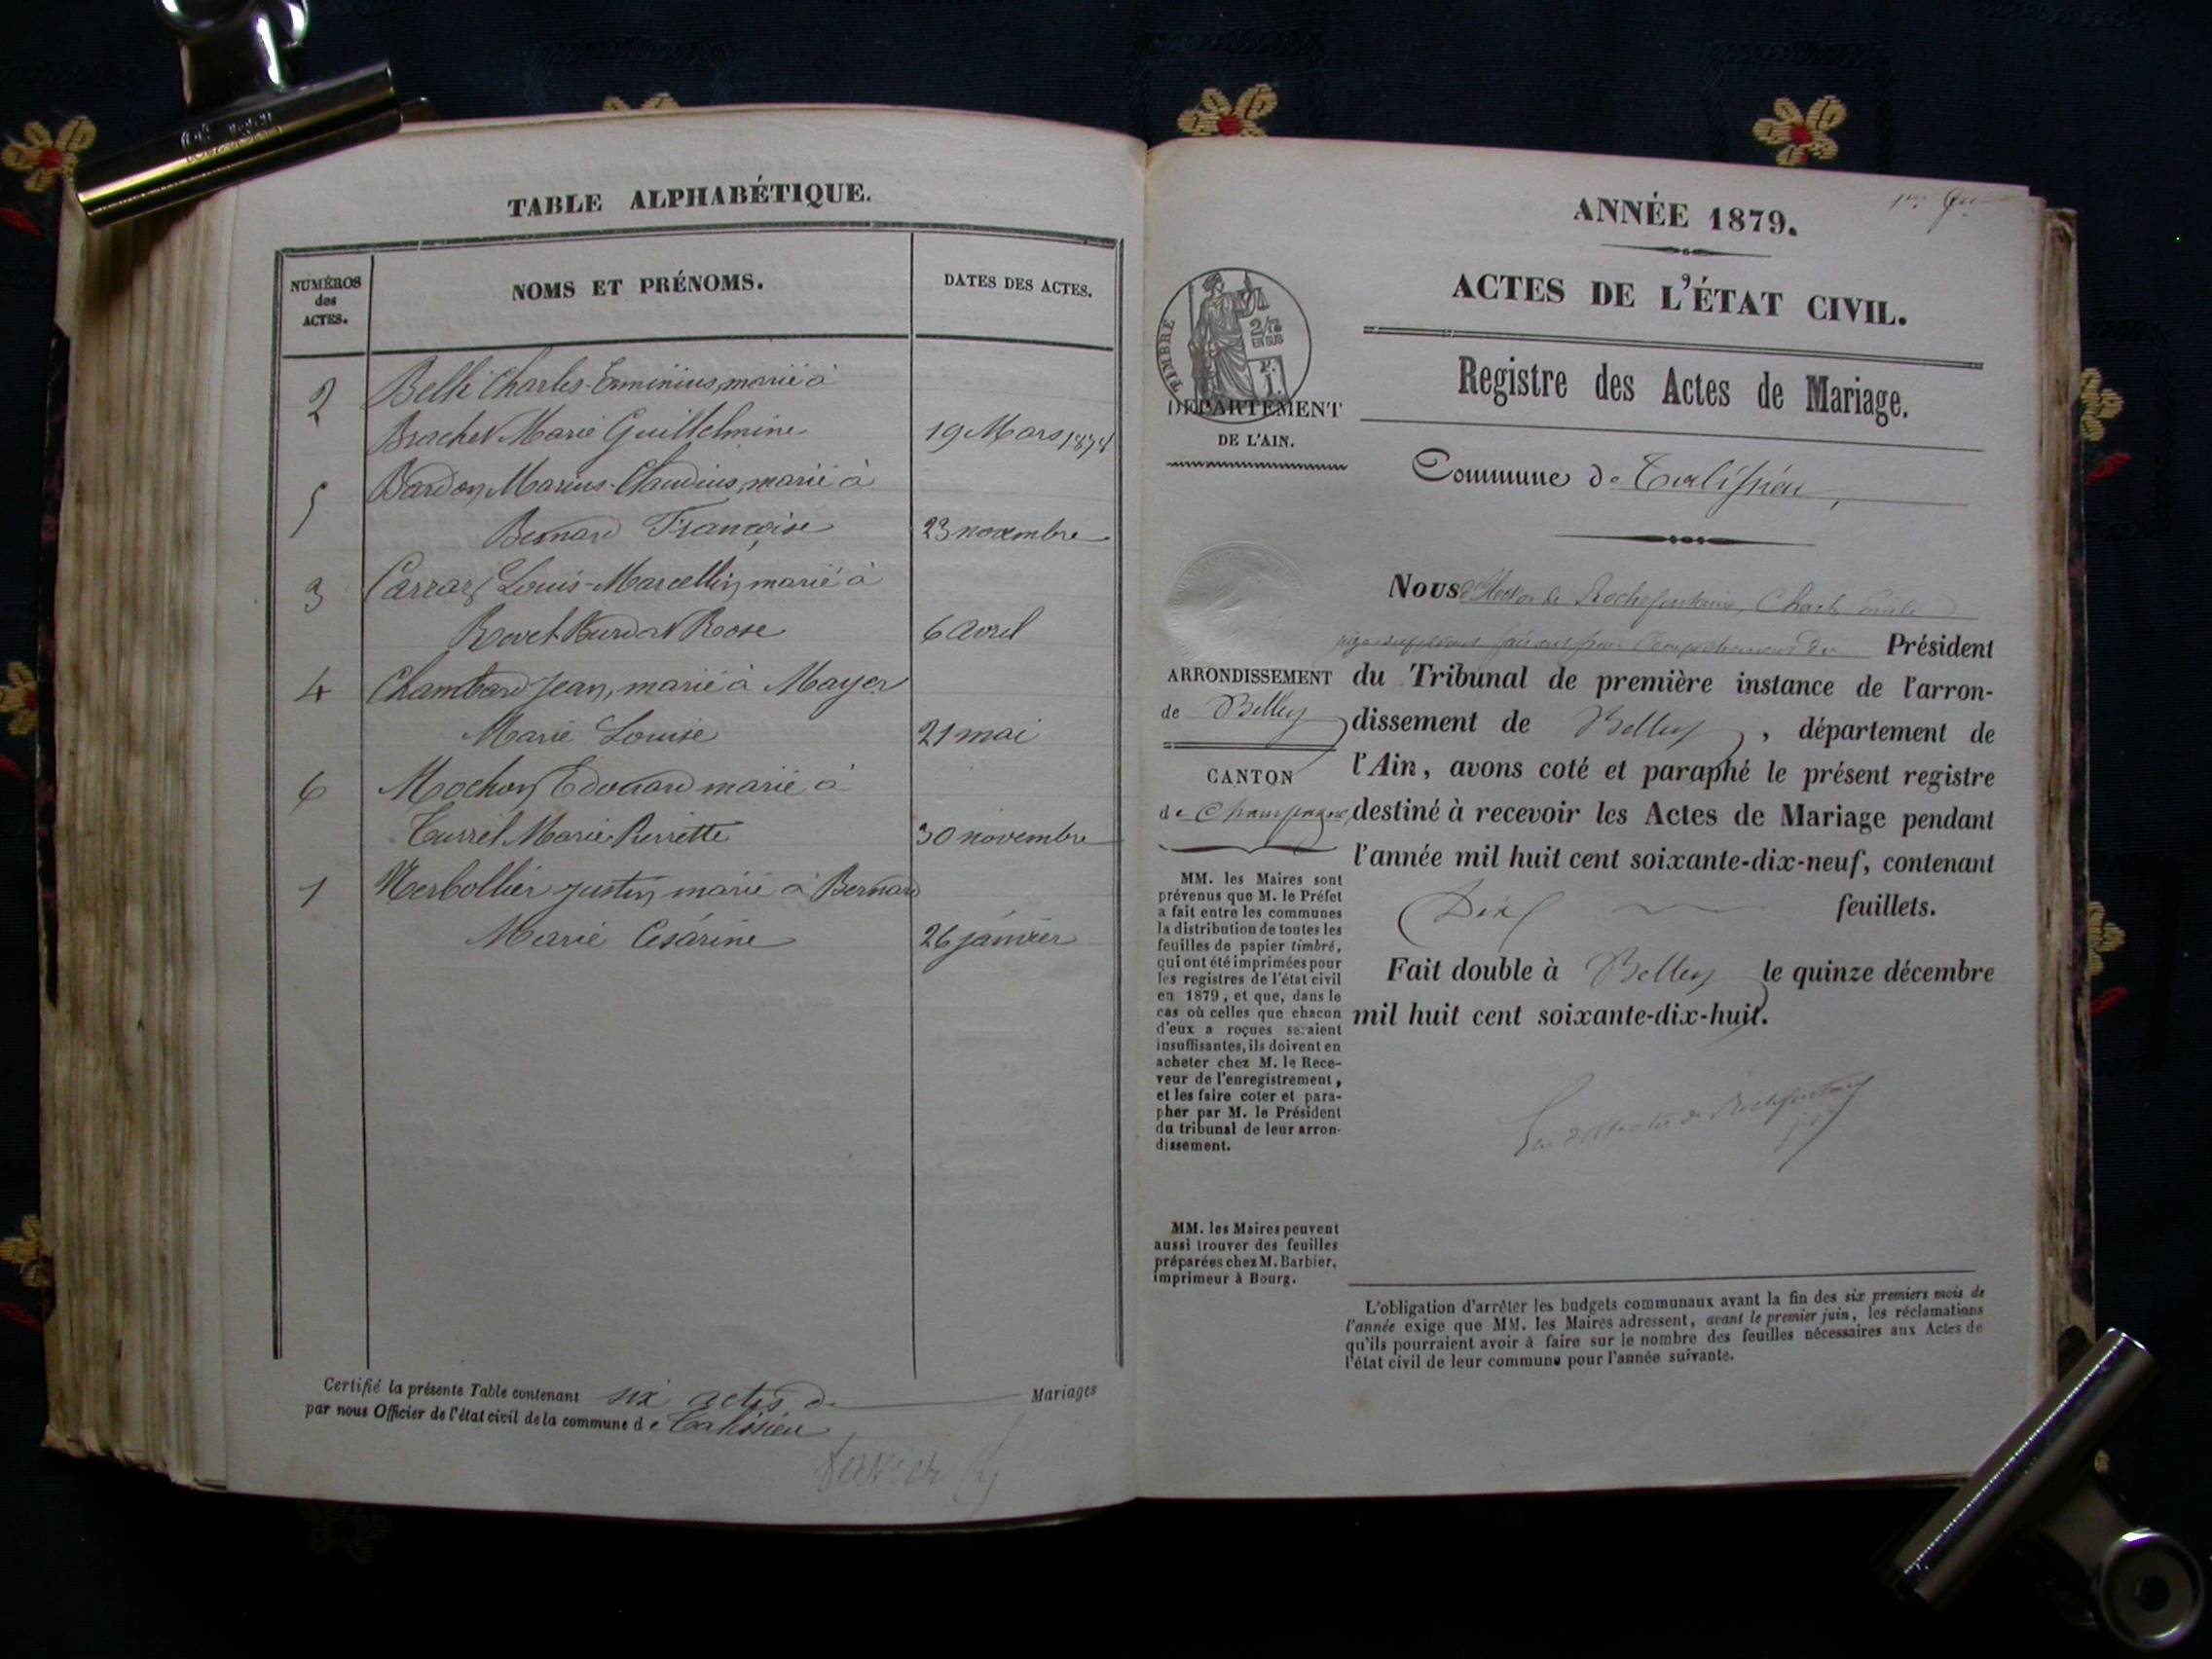 TABLE ALPHABÉTIQUE.
NUMÉROS
des
ACTES.
NOMS ET PRÉNOMS.
DATES DES ACTES.
2 Belli Charles-Erminius, marié à
Brachet Marie Guillelmine 19 Mars
5 Bardon, Marius-Claudius, marié à
Bernard Françoise 23 novembre
3 Carraz Louis-Marcellin, marié à
Rose 6 avril
4 Chambard Jean, marié à Mayer
Marie Louise 21 mai
6 Mochon Edouard marié à
Turrel Marie-Perrette 30 novembre
1 Merbollier Justin, marié à Bernard
Marie Césarine 26 janvier
Certifié la présente Table contenant six actes de Mariages
par nous Officier de l'état civil de la commune de Talissieu
1er
ANNÉE 1879.
ACTES DE L'ÉTAT CIVIL.
Registre des Actes de Mariage.
TIMBRE
2/10
EN SUS
DÉPARTEMENT
DE L'AIN.
Commune de Talissieu,
ARRONDISSEMENT
de Belley
CANTON
de Champagne,
MM. les Maires sont
prévenus que M. le Préfet
a fait entre les communes
la distribution de toutes les
feuilles de papier timbré,
qui ont été imprimées pour
les registres de l'état civil
en 1879, et que, dans le
cas où celles que chacun
d'eux a reçues seraient
insuffisantes, ils doivent en
acheter chez M. le Rece-
veur de l'enregistrement,
et les faire coter et para-
pher par M. le Président
du tribunal de leur arron-
dissement.
MM. les Maires peuvent
aussi trouver des feuilles
préparées chez M. Barbier,
imprimeur à Bourg.
Nous d'Hector de Rochefontaine, Charles Emile
juge suppléant pour l'empêchement du Président
du Tribunal de première instance de l'arron-
dissement de Belley, département de
l'Ain, avons coté et paraphé le présent registre
destiné à recevoir les Actes de Mariage pendant
l'année mil huit cent soixante-dix-neuf, contenant
Dix feuillets.
Fait double à Belley le quinze décembre
mil huit cent soixante-dix-huit.
d'Hector de Rochefontaine
L'obligation d'arrêter les budgets communaux avant la fin des six premiers mois de
l'année exige que MM. les Maires adressent, avant le premier juin, les réclamations
qu'ils pourraient avoir à faire sur le nombre des feuilles nécessaires aux Actes de
l'état civil de leur commune pour l'année suivante.